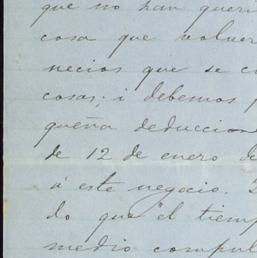 que no han queri
cosa que volver
necios que se co
cosas; i debemos p
queña deduccion
de 12 de enero de
á este negocio.
do que el tiemp
medio compul